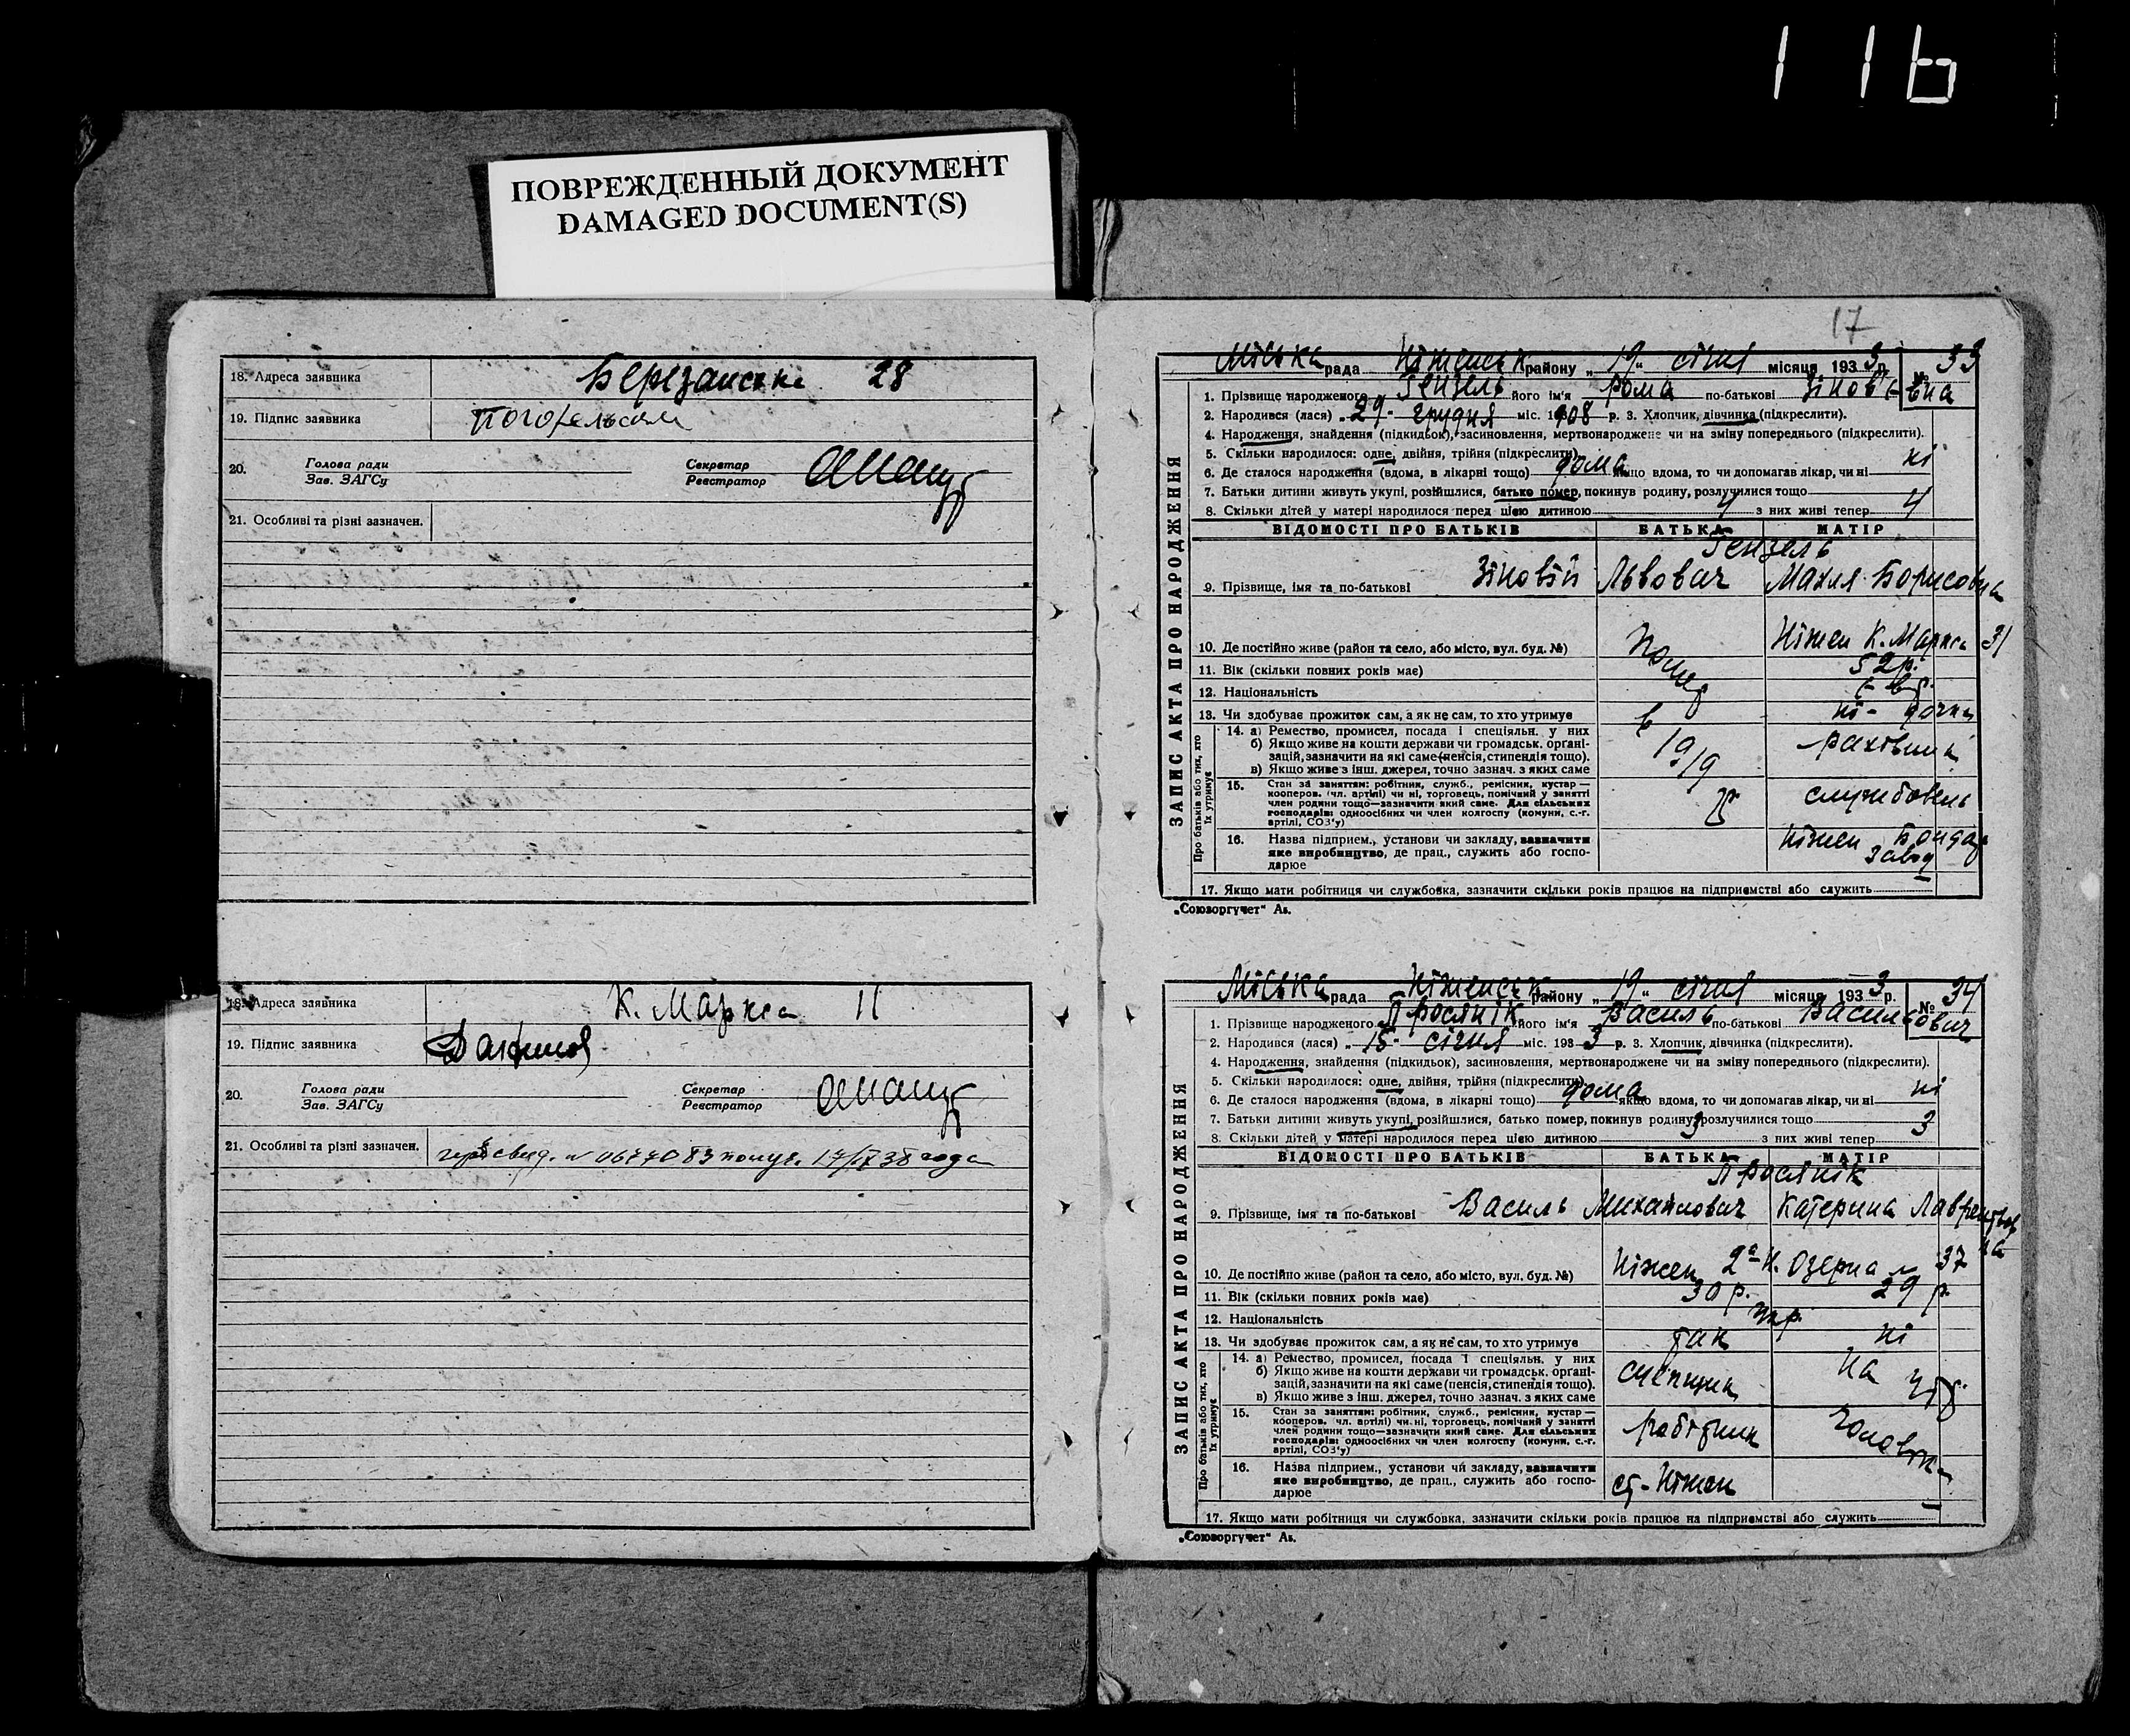 116
ПОВРЕЖДЕННЫЙ ДОКУМЕНТ
DAMAGED DOCUMENT(S)
18. Адреса заявника Березанська 28
19. Підпис заявника
20. Голова ради Секретар
Зав. ЗАГСу Реєстратор
21. Особливі та різні зазначен.
18. Адреса заявника К. Маркса 11
19. Підпис заявника
20. Голова ради Секретар
Зав. ЗАГСу Реєстратор
21. Особливі та різні зазначен. свид. № 0677083 получ. 17/IX 38 года
17
ЗАПИС АКТА ПРО НАРОДЖЕННЯ
Міська рада Ніженськ району „19“ січня місяця 1933 р. № 33
1. Прізвище народженого Гензель його ім'я Рома по-батькові Зінов'ївна
2. Народився (лася) „29“ грудня міс. 1908 р. 3. Хлопчик, дівчинка (підкреслити).
4. Народження, знайдення (підкидьок), засиновлення, мертвонароджене чи на зміну попереднього (підкреслити).
5. Скільки народилося: одне, двійня, трійня (підкреслити)
6. Де сталося народження (вдома, в лікарні тощо) дома якщо вдома, то чи допомагав лікар, чи ні ні
7. Батьки дитини живуть укупі, розійшлися, батько помер, покинув родину, розлучилися тощо
8. Скільки дітей у матері народилося перед цією дитиною 4 з них живі тепер 4
ВІДОМОСТІ ПРО БАТЬКІВ БАТЬКА МАТІР
Гензель
9. Прізвище, імя та по-батькові Зіновій Львович Махля Борисовна
10. Де постійно живе (район та село, або місто, вул. буд. №) Помер Ніжен К. Маркса 31
11. Вік (скільки повних років має) 52 р.
12. Національність євр.
13. Чи здобуває прожиток сам, а як не сам, то хто утримує в ні - дочка
Про батьків або тих, хто їх утримує
14. а) Ремество, промисел, посада і спеціяльн. у них 1919 рахівниця
б) Якщо живе на кошти держави чи громадськ. органі-
зацій, зазначити на які саме (пенсія, стипендія тощо).
в) Якщо живе з інш. джерел, точно зазнач. з яких саме
15. Стан за заняттям: робітник, служб., ремісник, кустар— р. службовець
кооперов. (чл. артілі) чи ні, торговець, помічний у занятті
член родини тощо—зазначити який саме. Для сільських
господарів: одноосібних чи член колгоспу (комуни, с.-г.
артілі, СОЗ'у)
16. Назва підприєм., установи чи закладу, зазначити Ніжен Бондар
яке виробництво, де прац., служить або госпо- Завод
дарює
17. Якщо мати робітниця чи службовка, зазначити скільки років працює на підприємстві або служить
„Союзоргучет“ Ав.
ЗАПИС АКТА ПРО НАРОДЖЕННЯ
Міська рада Ніженськ району „19“ січня місяця 1933 р. № 34
1. Прізвище народженого Просянік його ім'я Василь по-батькові Васильович
2. Народився (лася) „15“ січня міс. 1933 р. 3. Хлопчик, дівчинка (підкреслити).
4. Народження, знайдення (підкидьок), засиновлення, мертвонароджене чи на зміну попереднього (підкреслити).
5. Скільки народилося: одне, двійня, трійня (підкреслити)
6. Де сталося народження (вдома, в лікарні тощо) дома якщо вдома, то чи допомагав лікар, чи ні ні
7. Батьки дитини живуть укупі, розійшлися, батько помер, покинув родину, розлучилися тощо
8. Скільки дітей у матері народилося перед цією дитиною 3 з них живі тепер 3
ВІДОМОСТІ ПРО БАТЬКІВ БАТЬКА МАТІР
Просянік
9. Прізвище, імя та по-батькові Василь Михайлович Катерина Лаврентьовна
10. Де постійно живе (район та село, або місто, вул. буд. №) Ніжен 2а Н. Озерна № 37
11. Вік (скільки повних років має) 30 р. 29 р.
12. Національність укр.
13. Чи здобуває прожиток сам, а як не сам, то хто утримує так ні
Про батьків або тих, хто їх утримує
14. а) Ремество, промисел, посада і спеціяльн. у них сцепщик на утр.
б) Якщо живе на кошти держави чи громадськ. органі-
зацій, зазначити на які саме (пенсія, стипендія тощо).
в) Якщо живе з інш. джерел, точно зазнач. з яких саме
15. Стан за заняттям: робітник, служб., ремісник, кустар— робітник чоловіка
кооперов. чл. артілі) чи ні, торговець, помічний у занятті
член родини тощо—зазначити який саме. Для сільських
господарів: одноосібних чи член колгоспу (комуни, с.-г.
артілі, СОЗ'у)
16. Назва підприєм., установи чи закладу, зазначити ст. Ніжен
яке виробництво, де прац., служить або госпо-
дарює
17. Якщо мати робітниця чи службовка, зазначити скільки років працює на підприємстві або служить
„Союзоргучет“ Ав.